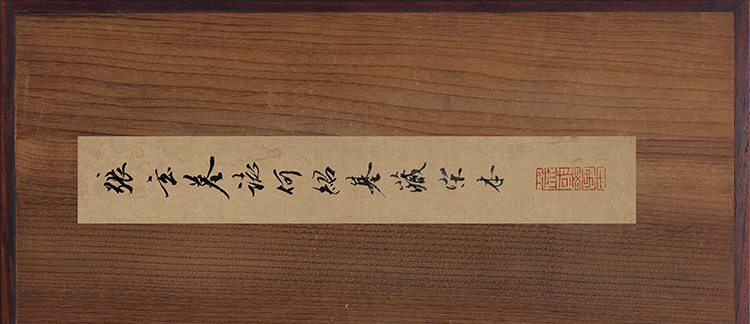 張玄墓誌何紹基藏宋本